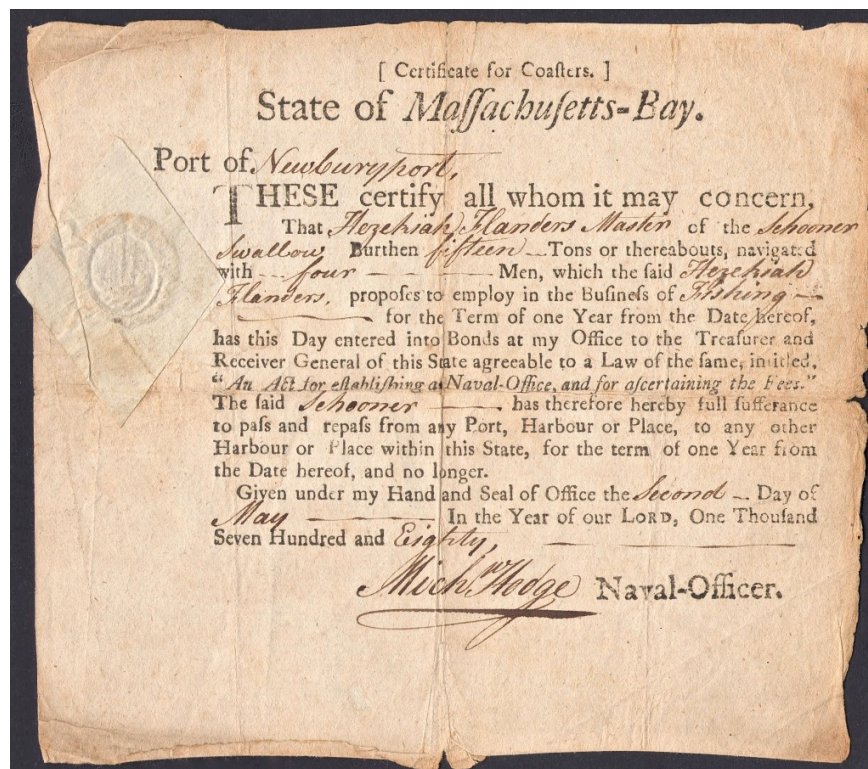 [ Certificate for Coaſters. ]
State of Maſſachuſetts-Bay.
Port of Newburyport,
THESE certify all whom it may concern,
That Hezekiah Flanders Master of the Schooner
Swallow Burthen fifteen Tons or thereabouts, navigated
with four Men, which the ſaid Hezekiah
Flanders, propoſes to employ in the Buſineſs of Fishing
for the Term of one Year from the Date hereof,
has this Day entered into Bonds at my Office to the Treaſurer and
Receiver General of this State agreeable to a Law of the ſame, intitled,
"An Act for eſtabliſhing a Naval-Office, and for aſcertaining the Fees."
The ſaid Schooner has therefore hereby full ſufferance
to paſs and repaſs from any Port, Harbour or Place, to any other
Harbour or Place within this State, for the term of one Year from
the Date hereof, and no longer.
Given under my Hand and Seal of Office the Second Day of
May In the Year of our LORD, One Thouſand
Seven Hundred and Eighty,
Mich Hodge Naval-Officer.